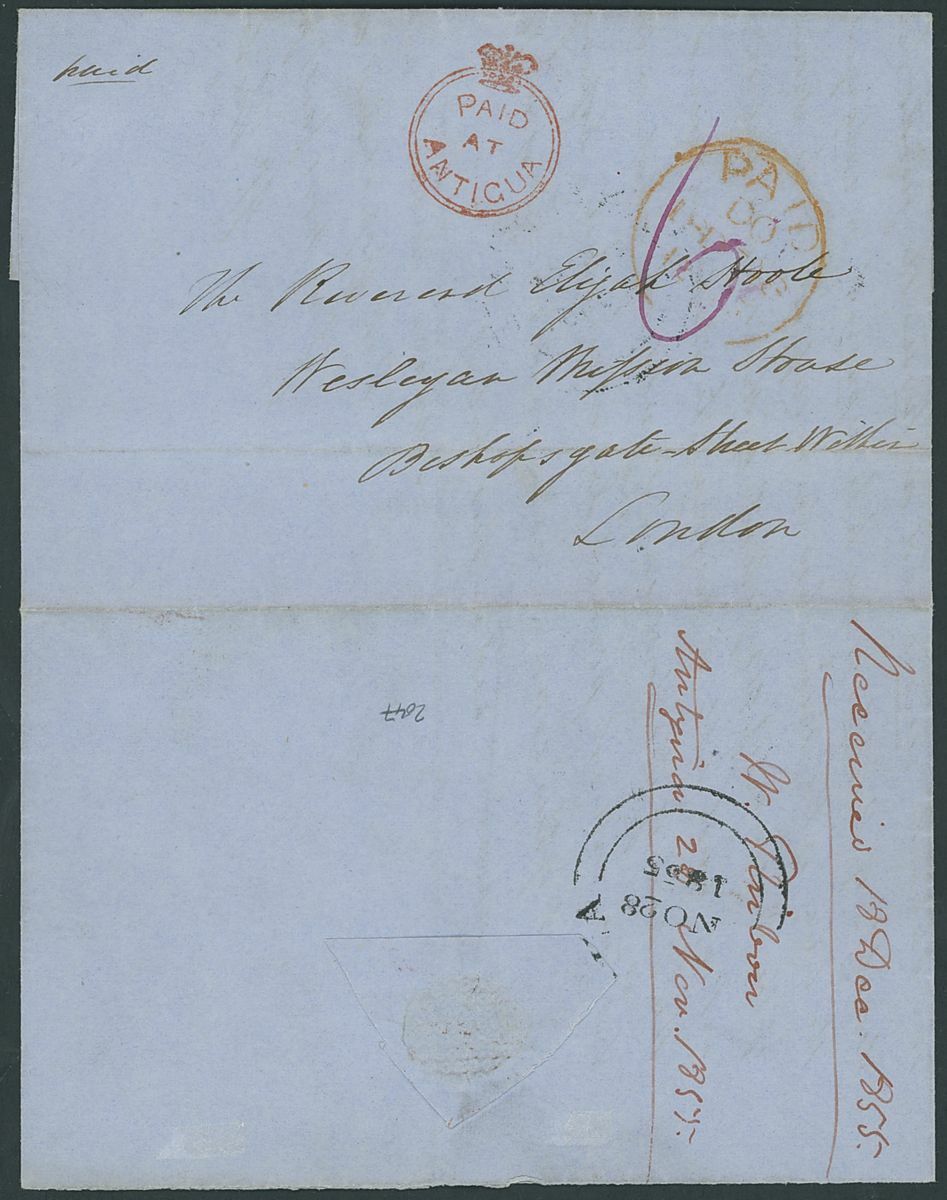 paid
PAID
AT
ANTIGUA
PAID
6
The Reverend Elijah Hoole
Wesleyan Mission House
Bishopsgate-Street Within
London
Received 18 Dec. 1855
Antigua 28 Nov. 1855
2047
A
NO 28
1855